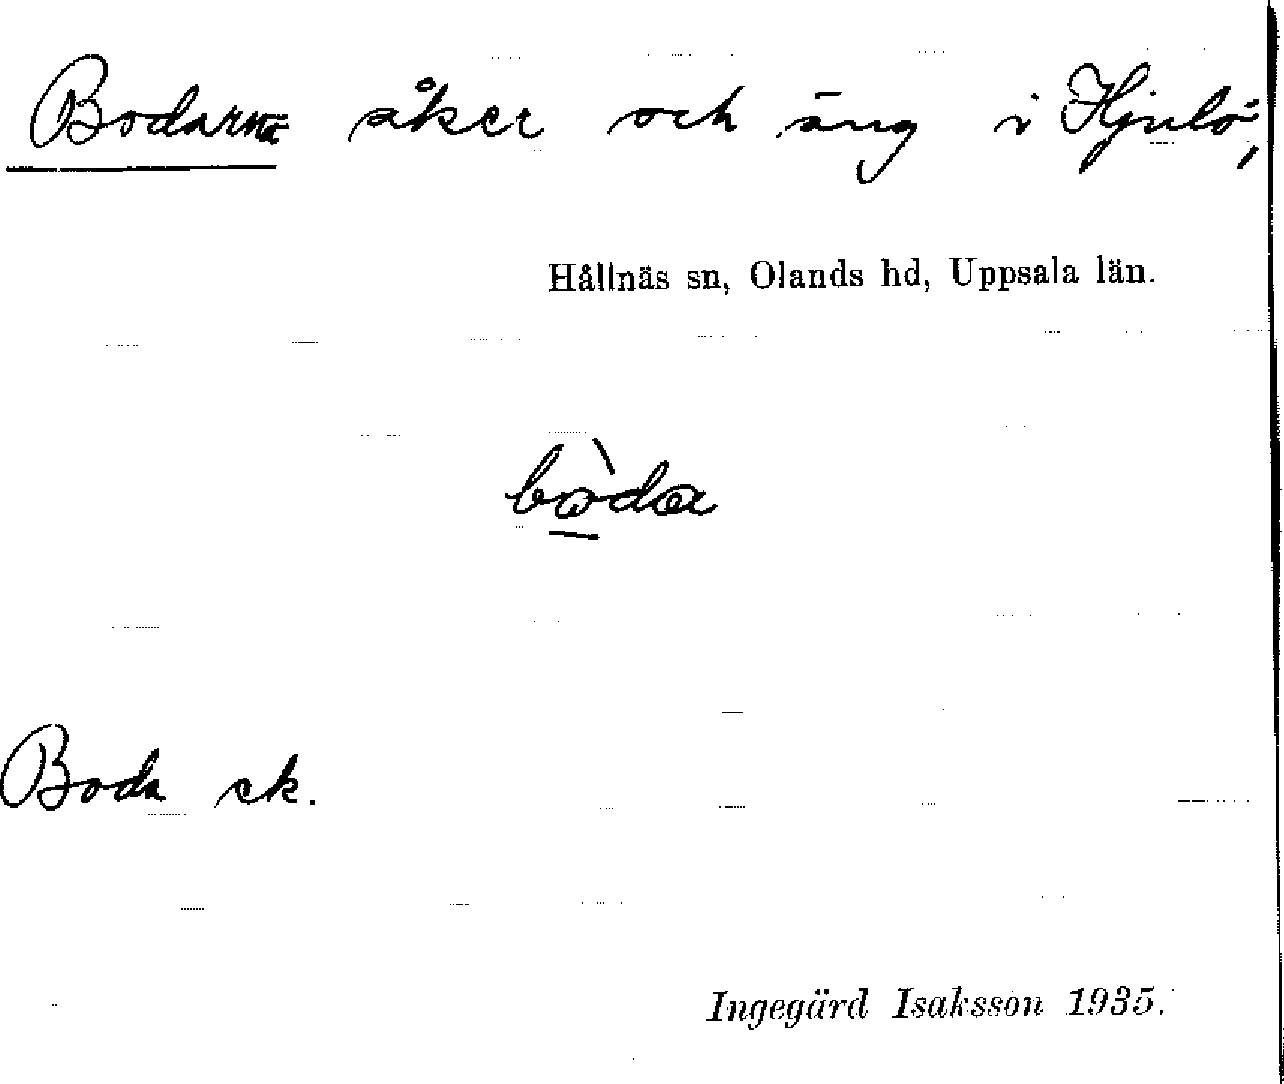 Bodarna åker och äng i Hjulö,
Hållnäs sn, Olands hd, Uppsala län.
bò̱da
Boda sk.
Ingegärd Isaksson 1935.